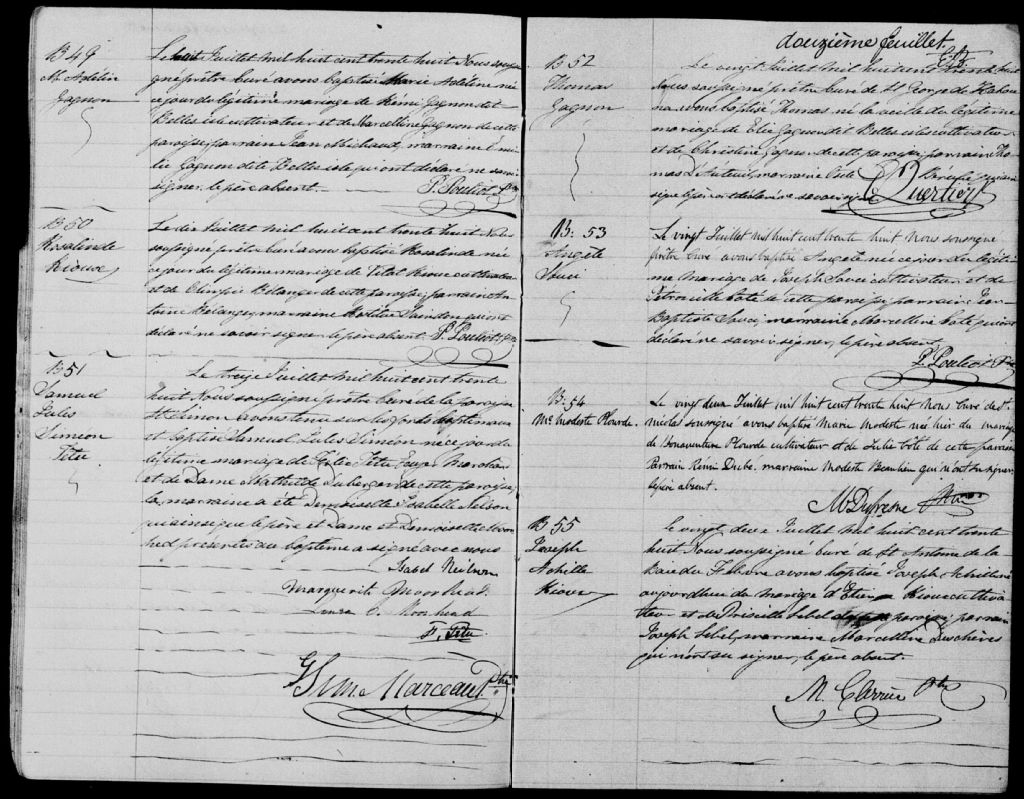 B 49
M. Adéline
Gagnon
Le huit Juillet mil huit cent trente huit Nous soussi-
gné prêtre curé avons baptisé Marie Adéline née
ce jour du légitime mariage de Rémi Gagnon dit
Belles isle cultivateur et de Marcelline Gagnon de cette
paroisse parrain Jean Michaud, marraine Emi-
lie Gagnon dite Belles isle qui ont déclaré ne savoir
signer, le père absent.
P. Pouliot Ptre
B 50
Rosalinde
Rioux
Le dix Juillet mil huit cent trente huit Nous
soussigné prêtre curé avons baptisé Rosalinde née
ce jour du légitime mariage de Vital Rioux cultivateur
et de Olimpie Bélanger de cette paroisse, parrain An-
toine Bélanger, marraine qui ont
déclaré ne savoir signer, le père absent. P. Pouliot Ptre
B 51
Samuel
Jules
Siméon
Têtu
Le treize Juillet mil huit cent trente
huit Nous soussigné prêtre curé de la paroisse
St Simon avons tenu sur les fonds baptismaux
et baptisé Samuel Jules Siméon né ce jour du
légitime mariage de Têtu Ecuyer Marchand
et de Dame Mathilde Auberger de cette paroisse,
la marraine a été Demoiselle Isabelle Nelson
qui ainsi que le père et Dame et Demoiselle Moor-
hed présentes au baptême a signé avec nous
Isabel
Marguerit Moorhead
Louisa C. Moorhead
F. Têtu
Marceau Ptre
douzième feuillet
B 52
Thomas
Gagnon
Le vingt Juillet mil huit cent trente huit
Nous soussigné prêtre curé de St George de Kakou-
na avons baptisé Thomas né la veille du légitime
mariage de Elie Gagnon dit Belles isles cultivateur
et de Christine Gagnon de cette paroisse parrain Tho-
mas D'Auteuil, marraine
signer le père a déclaré ne savoir signer
Quertier
B: 53
Angèle
Soucí
Le vingt Juillet mil huit cent trente huit Nous soussigné
prêtre curé avons baptisé Angèle née ce jour du légiti-
me mariage de Joseph Souci cultivateur et de
Pétronille Coté de cette paroisse parrain Jean
Baptiste Souci, marraine Marcelline Coté qui ont
déclaré ne savoir signer, le père absent.
P. Pouliot Ptre
B: 54
Mie Modeste Plourde.
Le vingt deux Juillet mil huit cent trente huit Nous curé de St.
nicolas soussigné avons baptisé Marie Modeste née hier du mariage
de Bonaventure Plourde cultivateur et de Julie Côté de cette paroisse
Parrain Rémi Dubé, marraine Modeste Beaulieu qui n'ont su signer,
le père absent.
Ms Dufresne Ptre
B 55
Joseph
Achille
Rioux
Le vingt deux Juillet mil huit cent trente
huit Nous soussigné curé de St Antoine de la
Baie du Febvre avons baptisé Joseph Achille né
aujourdhui du mariage d'Etienne Rioux cultiva-
teur et de Priscille Lebel de cette paroisse parrain
Joseph Lebel, marraine Marcelline Deschènes
qui n'ont su signer, le père absent.
M. Carrier Ptre